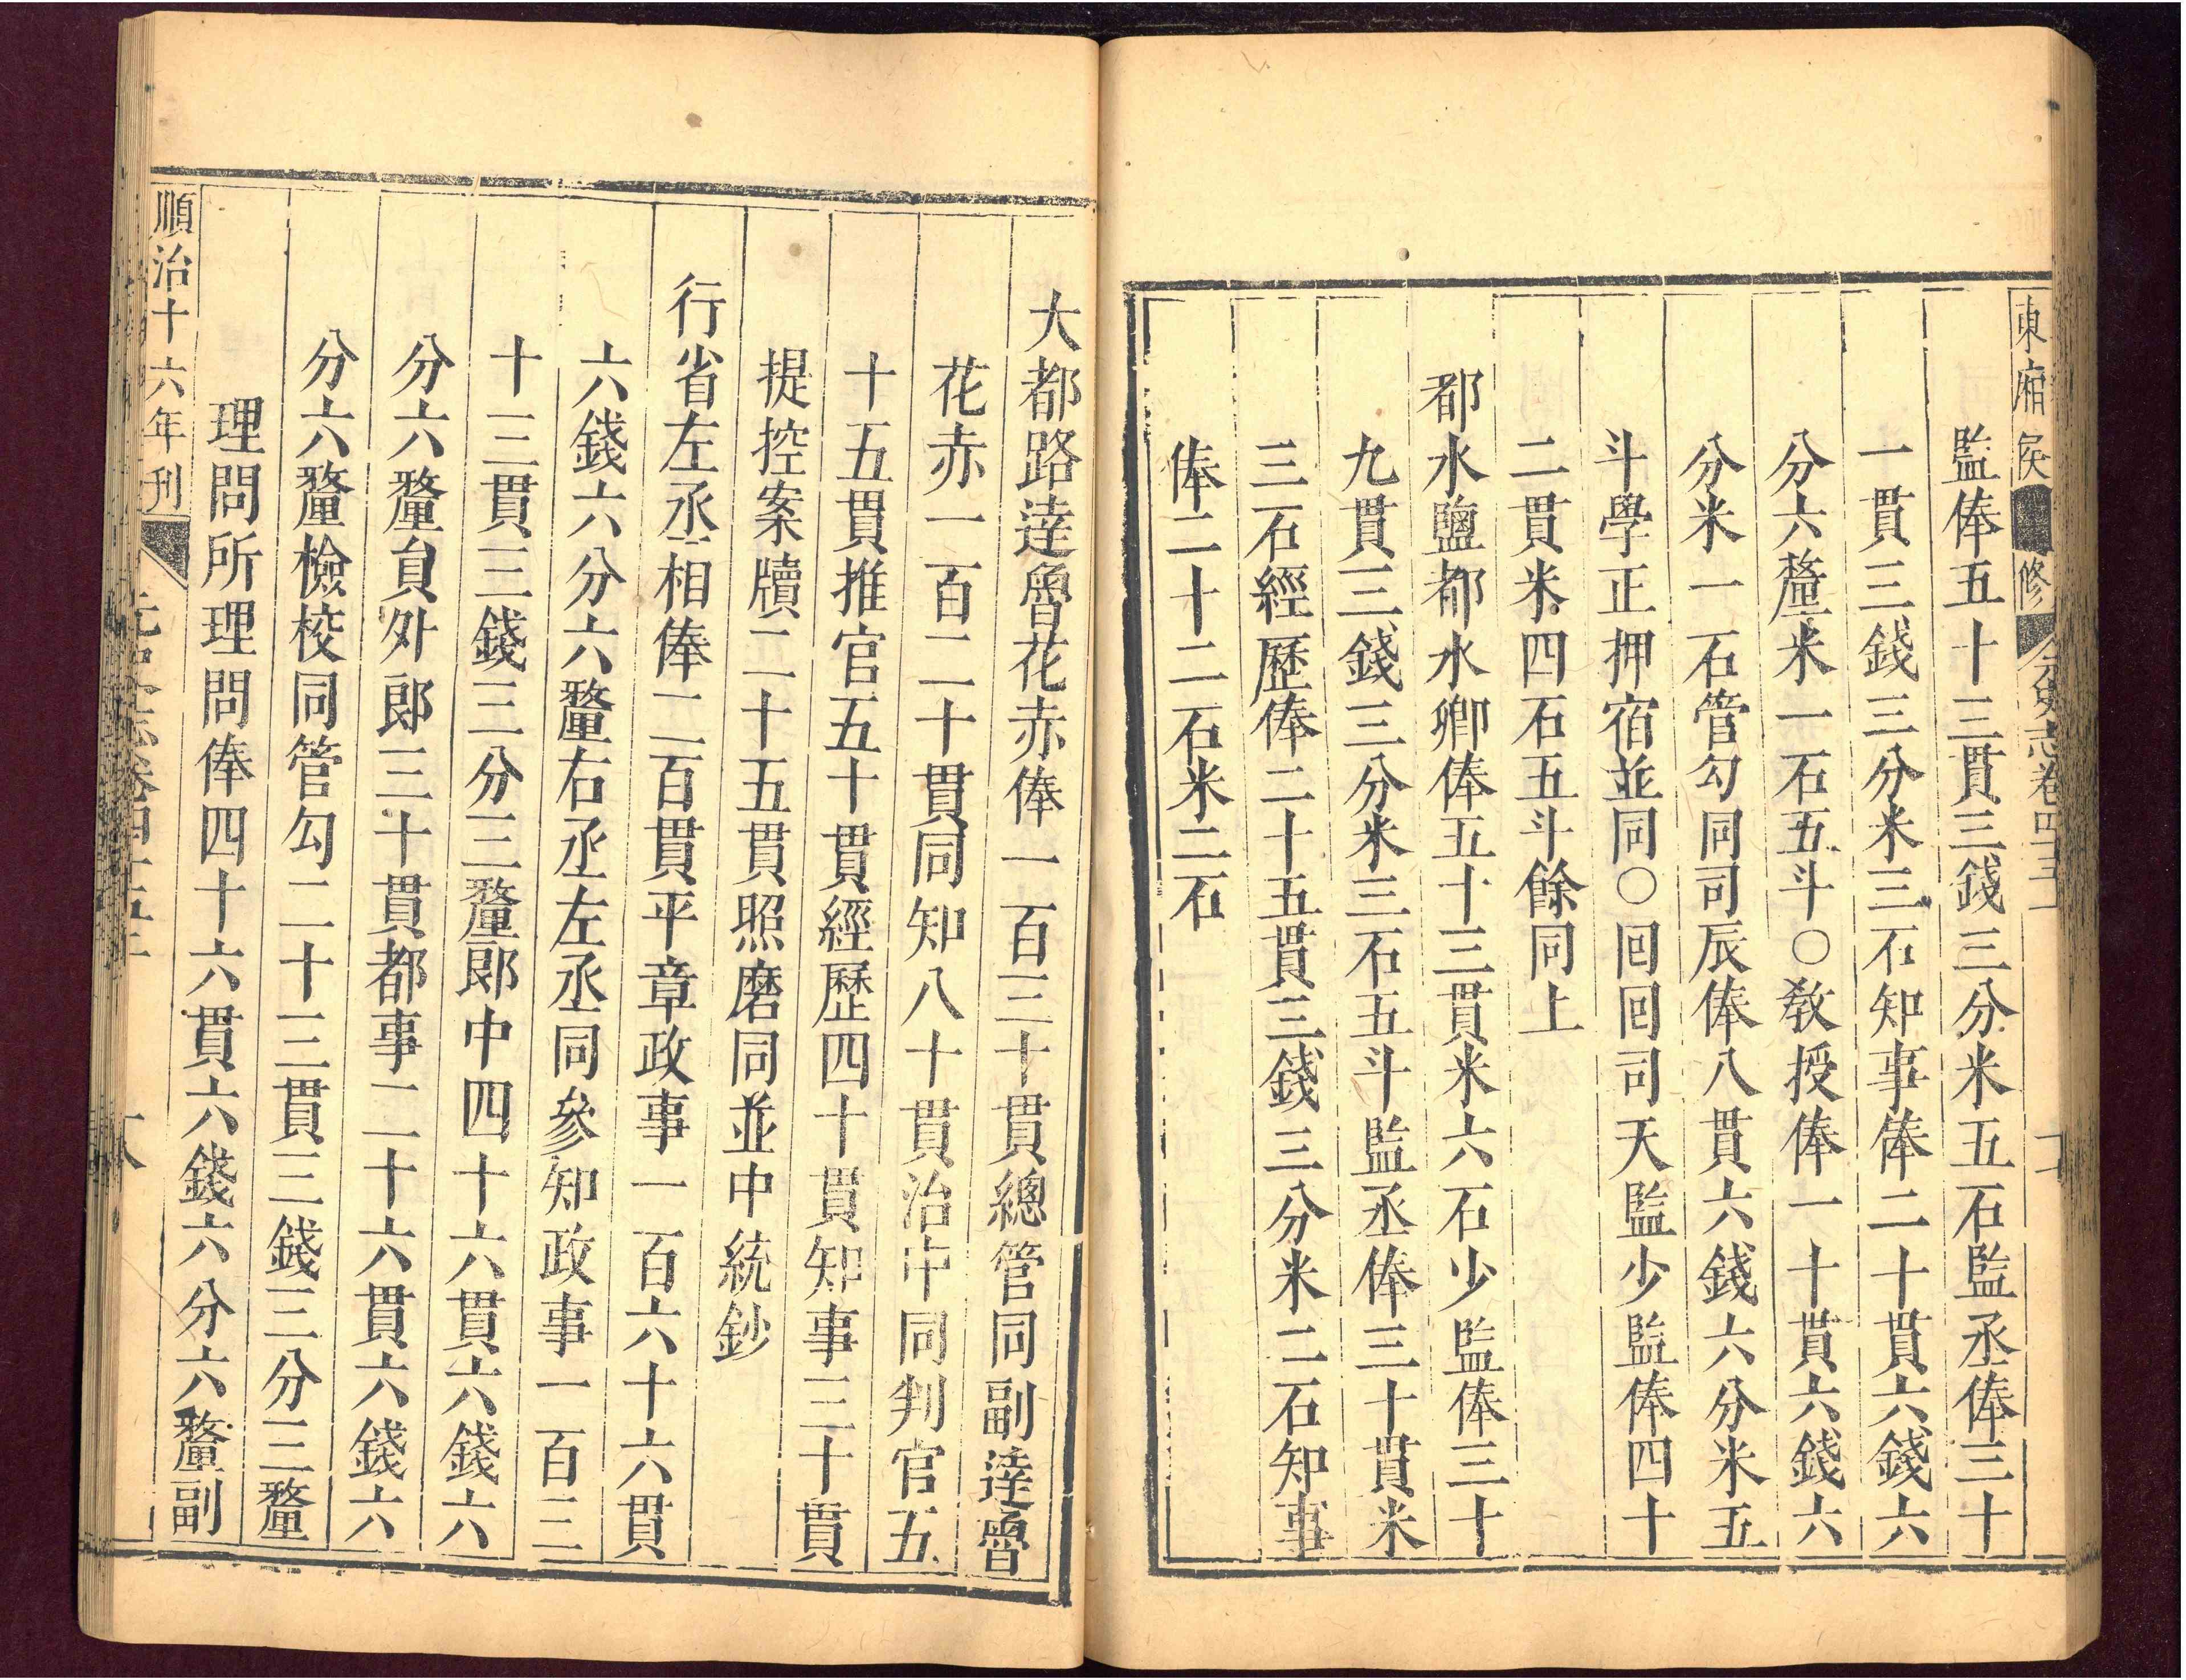 東廂 侯 修 元史志卷四十五
監俸五十三貫三錢三分米五石監丞俸三十
一貫三錢三分米三石知事俸二十貫六錢六
分六釐米一石五斗○教授俸一十貫六錢六
分米一石管勾同司辰俸八貫六錢六分米五
斗學正押宿並同○回回司天監少監俸四十
二貫米四石五斗餘同上
都水鹽都水卿俸五十三貫米六石少監俸三十
九貫三錢三分米三石五斗監丞俸三十貫米
三石經歷俸二十五貫三錢三分米二石知事
俸二十二石米二石
大都路達魯花赤俸一百三十貫總管同副達魯
花赤一百二十貫同知八十貫治中同判官五
十五貫推官五十貫經歷四十貫知事三十貫
提控案牘二十五貫照磨同並中統鈔
行省左丞相俸二百貫平章政事一百六十六貫
六錢六分六釐右丞左丞同參知政事一百三
十三貫三錢三分三釐郎中四十六貫六錢六
分六釐員外郎三十貫都事二十六貫六錢六
分六釐檢校同管勾二十三貫三錢三分三釐
理問所理問俸四十六貫六錢六分六釐副
順治十六年刊